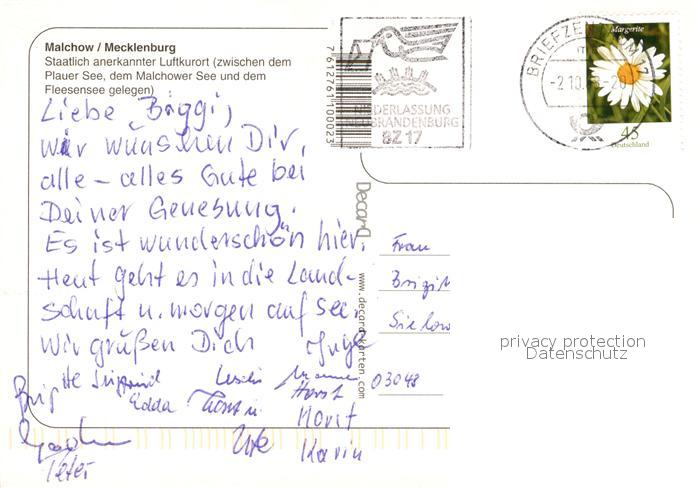 Malchow / Mecklenburg
Staatlich anerkannter Luftkurort (zwischen dem
Plauer See, dem Malchower See und dem
Fleesensee gelegen)
Liebe Biggi,
wir wünschen Dir,
alle - alles Gute bei
Deiner Genesung.
Es ist wunderschön hier.
Heut geht es in die Land-
schaft u. morgen auf See.
Wir grüßen Dich
Inge
Horst
Edda
Morit
Ute
Karin
Peter
7612761100023
Decard
www.decardkarten.com
NIEDERLASSUNG
NEUBRANDENBURG
BZ 17
BRIEFZENTRUM 17
-2.10.
Margerite
45
Deutschland
Frau
Brigit
03048
privacy protection
Datenschutz